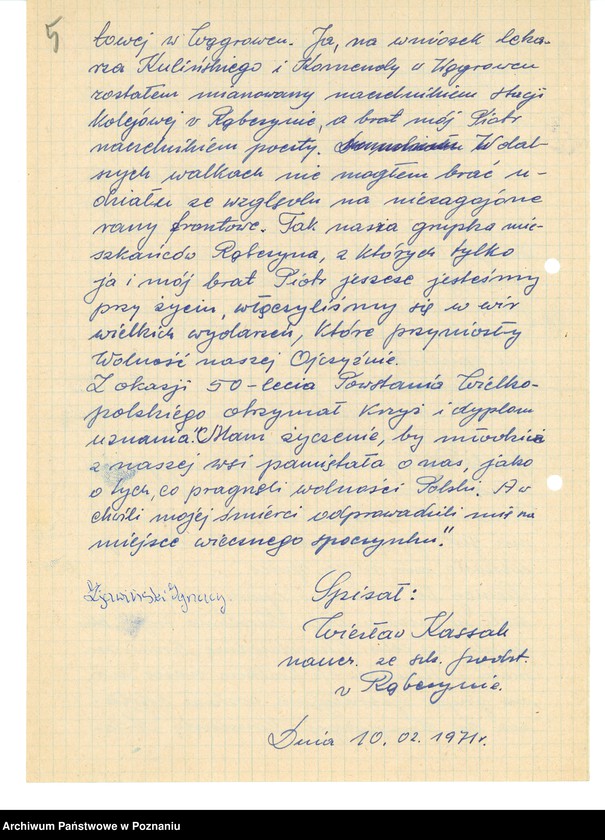 5
towej w Wągrowcu. Ja, na wniosek leka-
rza Kulińskiego i Komendy w Wągrowcu
zostałem mianowany naczelnikiem stacji
Kolejowej w Rąbczynie, a brat mój Piotr
naczelnikiem poczty. W dal-
szych walkach nie mogłem brać u-
działu ze względu na niezagojone
rany frontowe. Tak nasza grupka mie-
szkańców Rąbczyna, z których tylko
ja i mój brat Piotr jeszcze jesteśmy
przy życiu, włączyliśmy się w wir
wielkich wydarzeń, które przyniosły
Wolność naszej Ojczyźnie.
Z okazji 50-lecia Powstania Wielko-
polskiego otrzymał Krzyż i dyplom
uznania. "Mam życzenie, by młodzież
z naszej wsi pamiętała o nas, jako
o tych, co pragnęli wolności Polski. A w
chwili mojej śmierci odprowadzili mię na
miejsce wiecznego spoczynku."
Ignacy.
Spisał:
Wiesław Kassak
naucz. ze szk. podst.
w Rąbczynie.
Dnia 10.02.1971r.
Archiwum Państwowe w Poznaniu